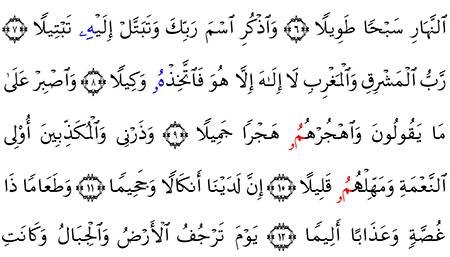 ٱلنَّهَارِ سَبْحًا طَوِيلًا ﴿٦﴾ وَٱذْكُرِ ٱسْمَ رَبِّكَ وَتَبَتَّلْ إِلَيْهِۦ تَبْتِيلًا ﴿٧﴾
رَبُّ ٱلْمَشْرِقِ وَٱلْمَغْرِبِ لَا إِلَٰهَ إِلَّا هُوَ فَٱتَّخِذْهُۥ وَكِيلًا ﴿٨﴾ وَٱصْبِرْ عَلَىٰ
مَا يَقُولُونَ وَٱهْجُرْهُمُۥ هَجْرًا جَمِيلًا ﴿٩﴾ وَذَرْنِي وَٱلْمُكَذِّبِينَ أُوْلِى
ٱلنَّعْمَةِ وَمَهِّلْهُمُۥ قَلِيلًا ﴿١٠﴾ إِنَّ لَدَيْنَا أَنكَالًا وَجَحِيمًا ﴿١١﴾ وَطَعَامًا ذَا
غُصَّةٍ وَعَذَابًا أَلِيمًا ﴿١٢﴾ يَوْمَ تَرْجُفُ ٱلْأَرْضُ وَٱلْجِبَالُ وَكَانَتِ